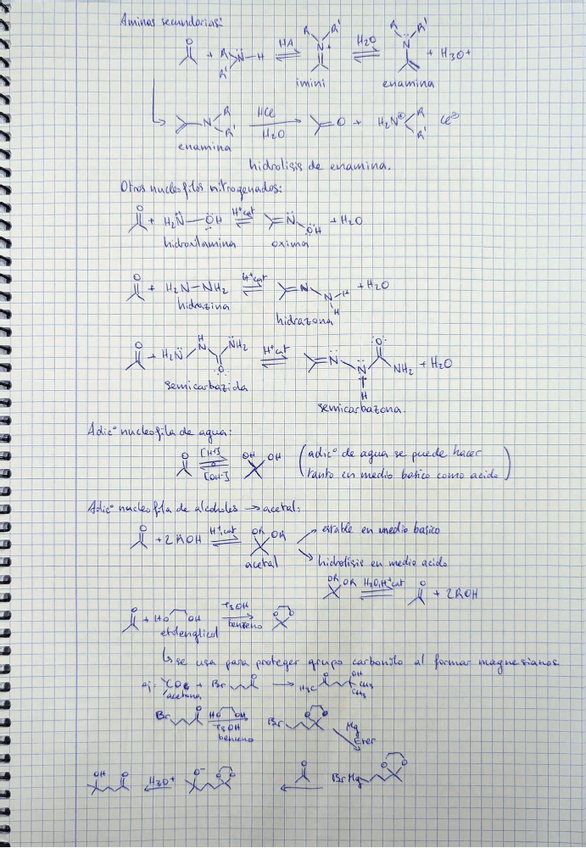 Aminas secundarias:
O + R N H R' HA R R' N+ H2O R R' N + H3O+
imini enamina
N R R' HCl H2O O + H2N⊕ R R' Cl⊖
enamina
hidrolisis de enamina.
Otros nucleofilos nitrogenados:
O + H2N — OH H+cat N OH + H2O
hidroxilamina oxima
O + H2N — NH2 H+cat N N H H + H2O
hidrazina hidrazona
O + H2N H N O NH2 H+cat N N H O NH2 + H2O
semicarbazida
semicarbazona.
Adic° nucleofila de agua:
O [H+] [OH-] OH OH (adic° de agua se puede hacer
tanto en medio basico como acido)
Adic° nucleofila de alcoholes → acetal:
O + 2 ROH H+,cat OR OR → estable en medio basico
acetal → hidrolisis en medio acido
OR OR H2O, H+cat O + 2ROH
O + HO OH TsOH benceno O O
etilenglicol
↳ se usa para proteger grupo carbonilo al formar magnesianos.
ej: + Br O → H3C O OH CH3 CH3
acetona
Br O HO OH TsOH benceno Br O O Mg Eter
OH O H3O+ O- O O O BrMg O O